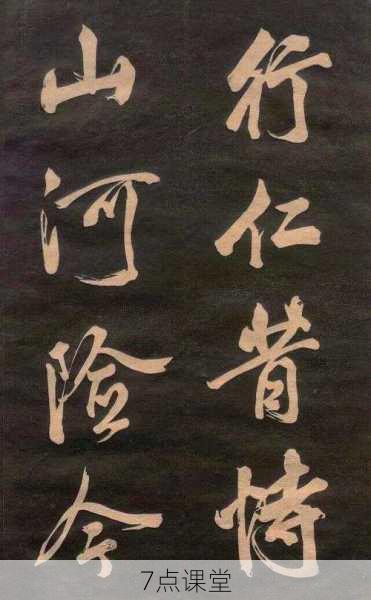 行仁昔恃
山河险今
7点课堂